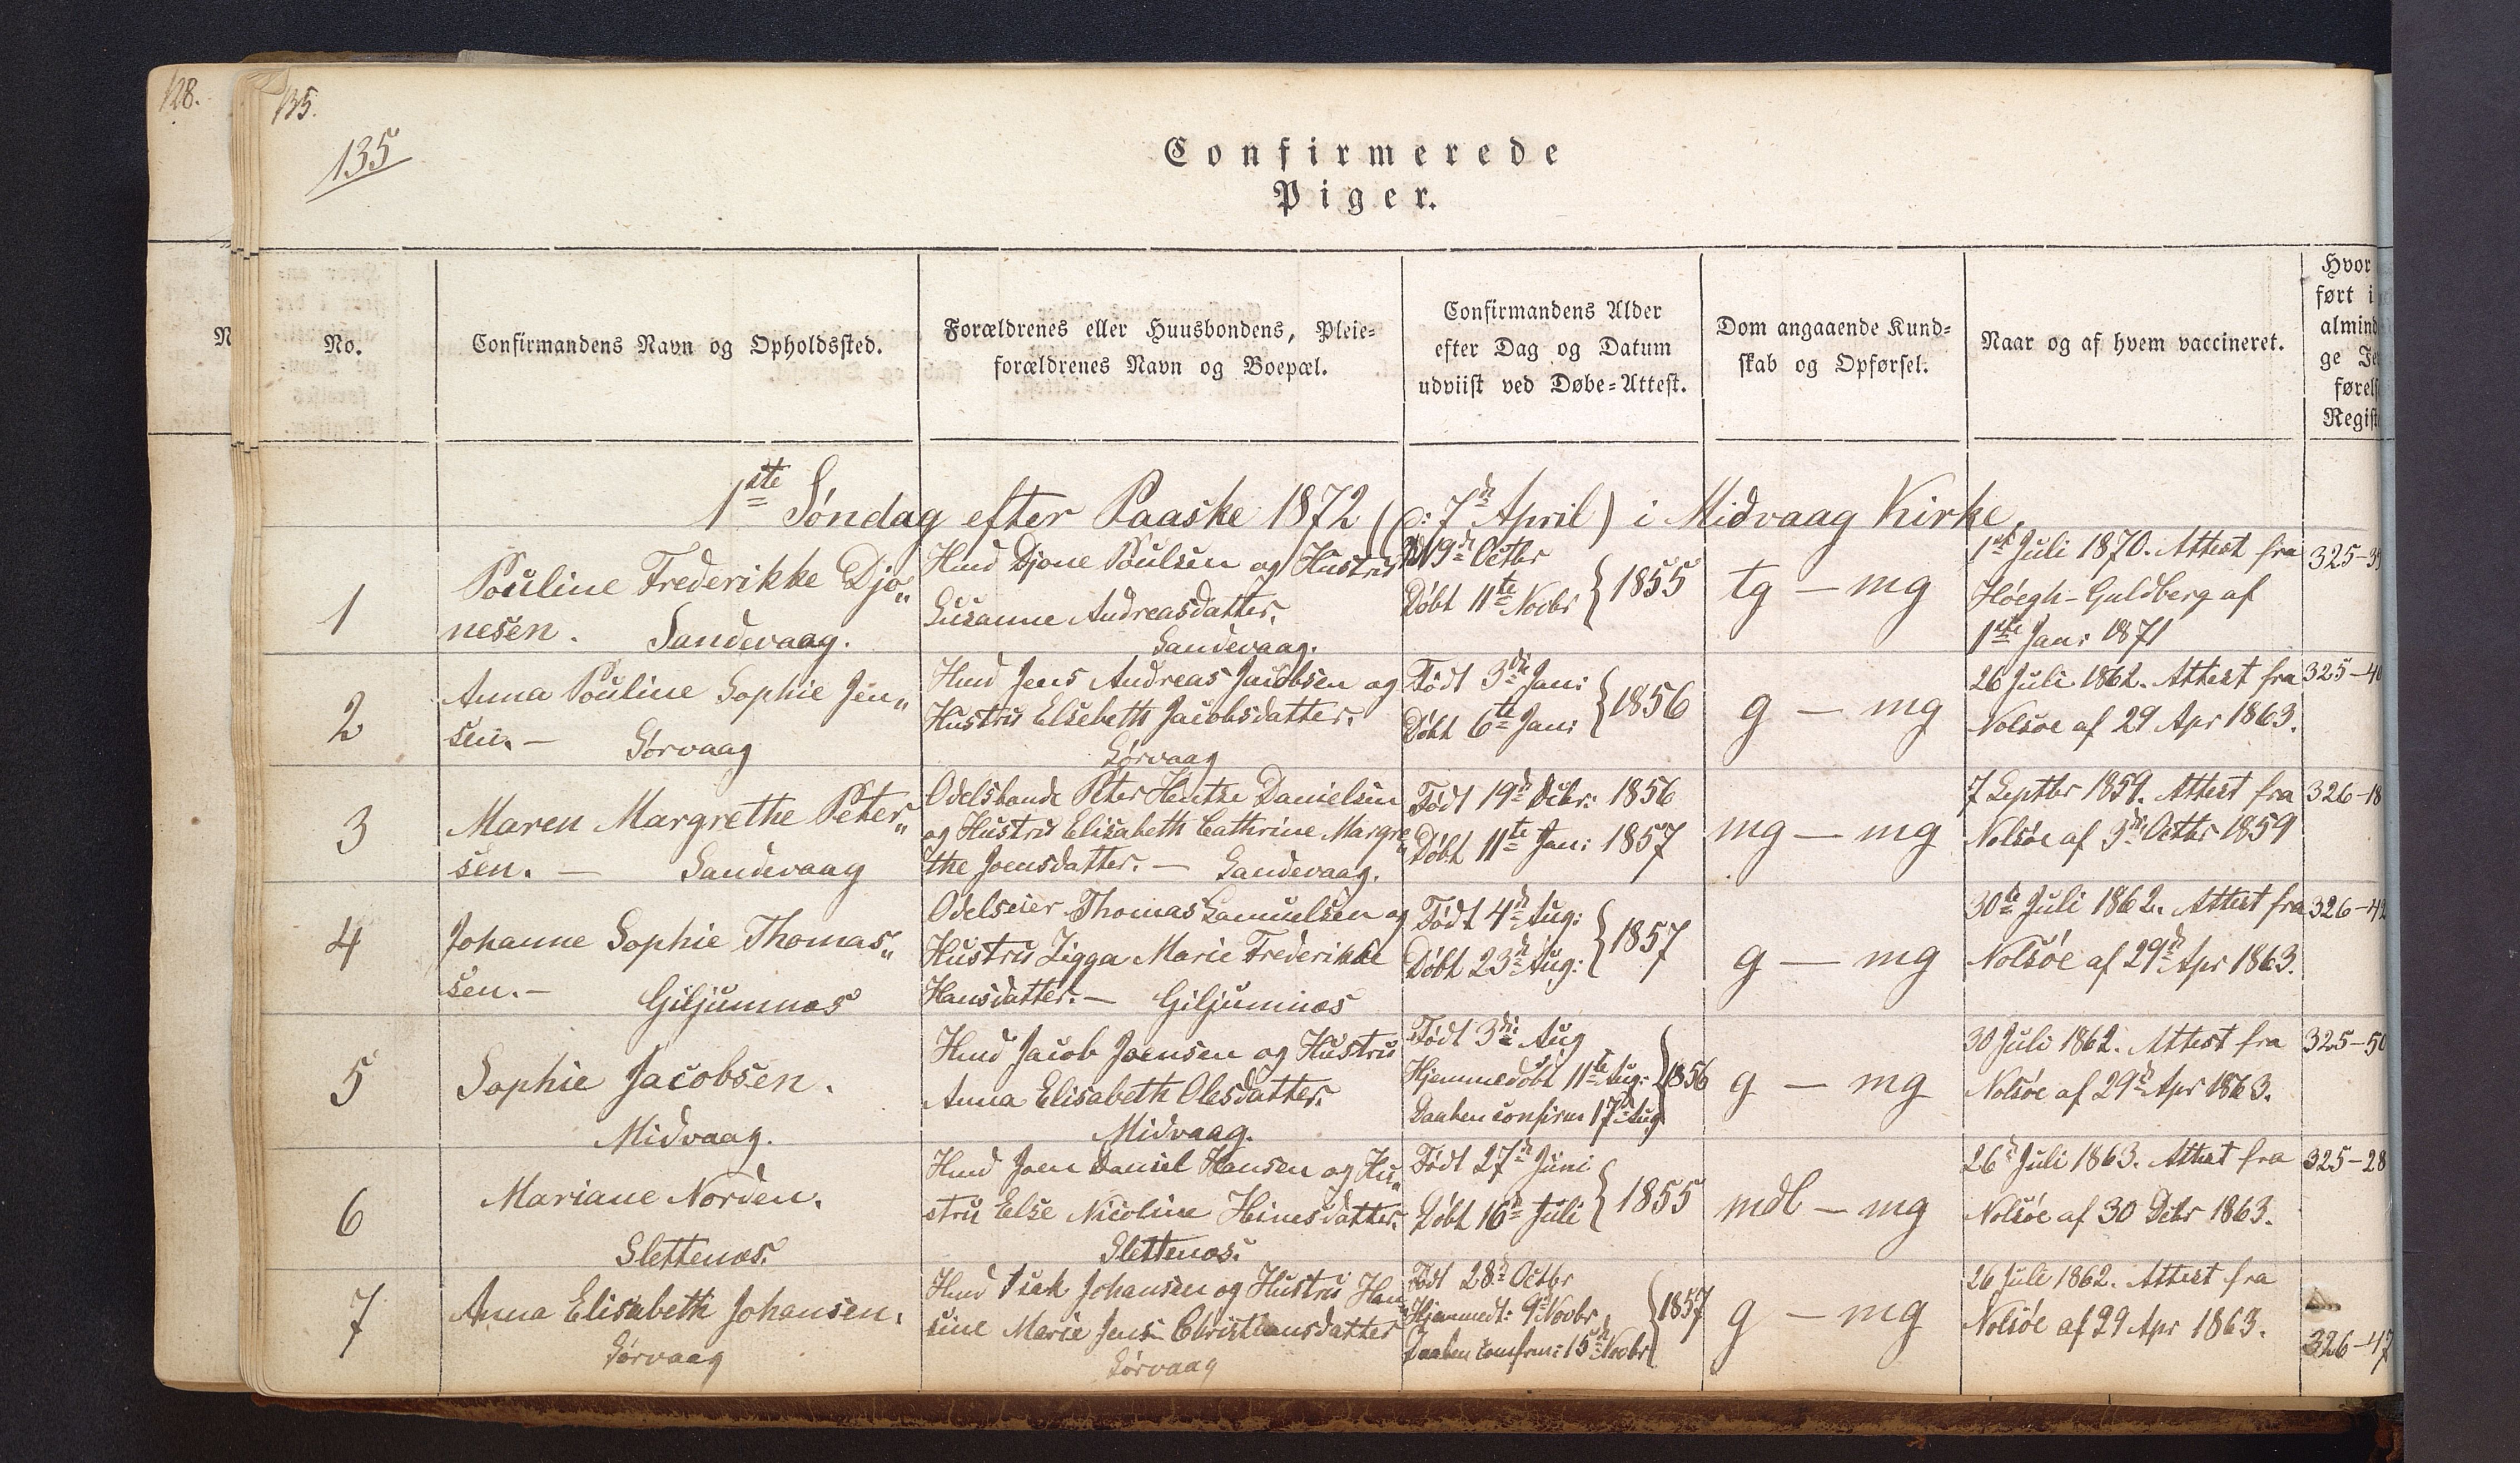 128.
135.
135
Confirmerede
Piger.
No.
Confirmandens Navn og Opholdssted.
Forældrenes eller Huusbondens, Pleie=
forældrenes Navn og Boepæl.
Confirmandens Alder
efter Dag og Datum
udviist ved Døbe=Attest.
Dom angaaende Kund=
skab og Opførsel.
Naar og af hvem vaccineret.
Hvor
ført i
almind
ge Je
førel
Regist
1ste Søndag efter Paaske 1872 (d: 7de April) i Midvaag Kirke.
1
Pouline Frederikke Djo„
nesen. Sandevaag.
Hmd Djone Poulsen og Hustru
Susanne Andreasdatter.
Sandevaag.
19de Octbr
Døbt 11te Novbr } 1855
tg — mg
1ste Juli 1870. Attest fra
Høegh-Guldberg af
1ste Jan: 1871
325-39
2
Anna Pouline Sophie Jen„
sen. — Sørvaag
Hmd Jens Andreas Jacobsen og
Hustru Elsebeth Jacobsdatter.
Sørvaag
Født 3die Jan:
Døbt 6te Jan: } 1856
g — mg
26 Juli 1862. Attest fra
Nolsøe af 29 Apr 1863.
325-40
3
Maren Margrethe Peter„
sen. — Sandevaag
Odelsbonde Peter Hentze Danielsen
og Hustru Elisabeth Cathrine Margre„
the Joensdatter. — Sandevaag.
Født 19de Decbr: 1856
Døbt 11te Jan: 1857
mg — mg
7 Septbr 1859. Attest fra
Nolsøe af 3die Octbr 1859
326-18
4
Johanne Sophie Thomas„
sen. — Giljumnæs
Odelseier Thomas Samuelsen og
Hustru Zigga Marie Frederikke
Hansdatter. — Giljumnæs
Født 4de Aug:
Døbt 23de Aug: } 1857
g — mg
30te Juli 1862. Attest fra
Nolsøe af 29de Apr 1863.
326-42
5
Sophie Jacobsen.
Midvaag.
Hmd Jacob Joensen og Hustru
Anna Elisabeth Olesdatter.
Midvaag.
Født 3die Aug
Hjemmedøbt 11te Aug: } 1856
Daaben confirm 17de Aug
g — mg
30 Juli 1862. Attest fra
Nolsøe af 29de Apr 1863.
325-50
6
Mariane Norden.
Slettenæs.
Hmd Joen Daniel Hansen og Hu„
stru Else Nicoline Heinesdatter.
Slettenæs.
Født 27de Juni
Døbt 16de Juli } 1855
mdl — mg
26de Juli 1863. Attest fra
Nolsøe af 30 Decbr 1863.
325-28
7
Anna Elisabeth Johansen.
Sørvaag
Hmd Isak Johansen og Hustru Han„
sine Marie Jens Christiansdatter
Sørvaag
Født 28de Octbr
Hjemmedt: 9de Novbr } 1857
Daaben confirm: 15de Novbr
g — mg
26 Juli 1862. Attest fra
Nolsøe af 29 Apr 1863.
326-47